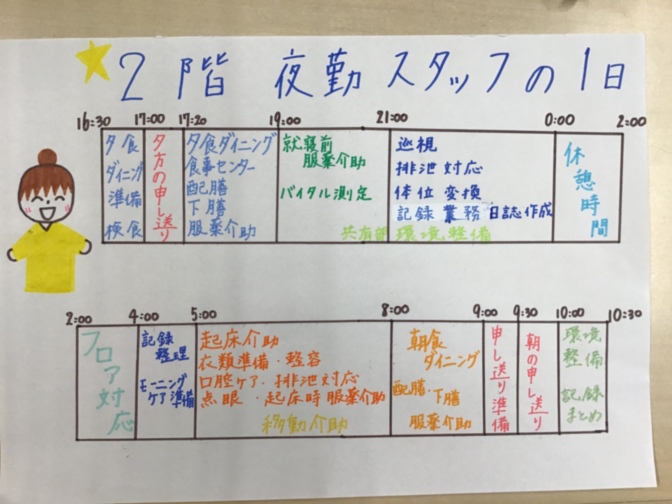 2階 夜勤スタッフの1日
16:30 17:00 17:20 19:00 21:00 0:00 2:00
夕食
ダイニング
準備
検食
夕方の申し送り
夕食ダイニング
食事センター
配膳
下膳
服薬介助
就寝前
服薬介助
バイタル測定
巡視
排泄対応
体位変換
記録業務 日誌作成
環境軽備
休憩時間
2:00 4:00 5:00 8:00 9:00 9:30 10:00 10:30
フロア対応
記録
整理
モーニング
ケア準備
起床介助
衣類準備・軽容
口腔ケア・排泄対応
点眼・起床時服薬介助
移動介助
朝食
ダイニング
配膳・下膳
服薬介助
申し送り準備
朝の申し送り
環境
整備
記録
まとめ